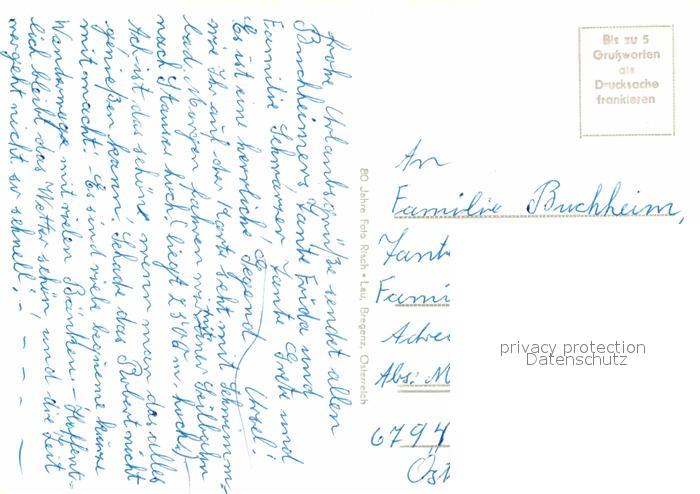 Frohe Urlaubsgrüße sendet allen
Buchheimers, Tante Frida und
Familie Schwarzer, Tante Grete und
Ursel!
Es ist eine herrliche Gegend
wie Ihr auf der Karte seht mit Schwimm-
bad. Morgen fahren wir mit einer Seilbahn
nach hoch (liegt 2300 m. hoch.)
Ach ist das schön wenn man das alles
genießen kann! Schade das Robert nicht
mit macht! Es sind viele bequeme kurze
Wanderwege mit vielen Bänken. - Hoffent-
lich bleibt das Wetter schön, und die Zeit
vergeht nicht so schnell! - - - -
80 Jahre Foto Risch-Lau, Bregenz, Österreich
Bis zu 5
Grußworten
als
Drucksache
frankieren
An
Familie Buchheim,
Tante
Fami
Adre
Abs: M
6794
Öst
privacy protection
Datenschutz